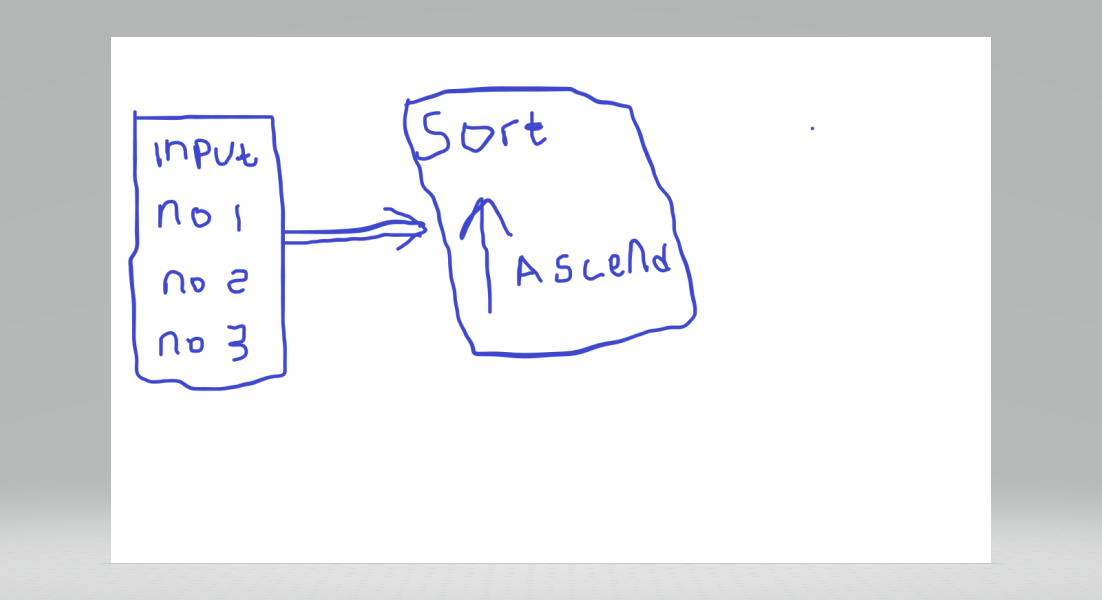 input
no 1
no 2
no 3
Sort
Ascend